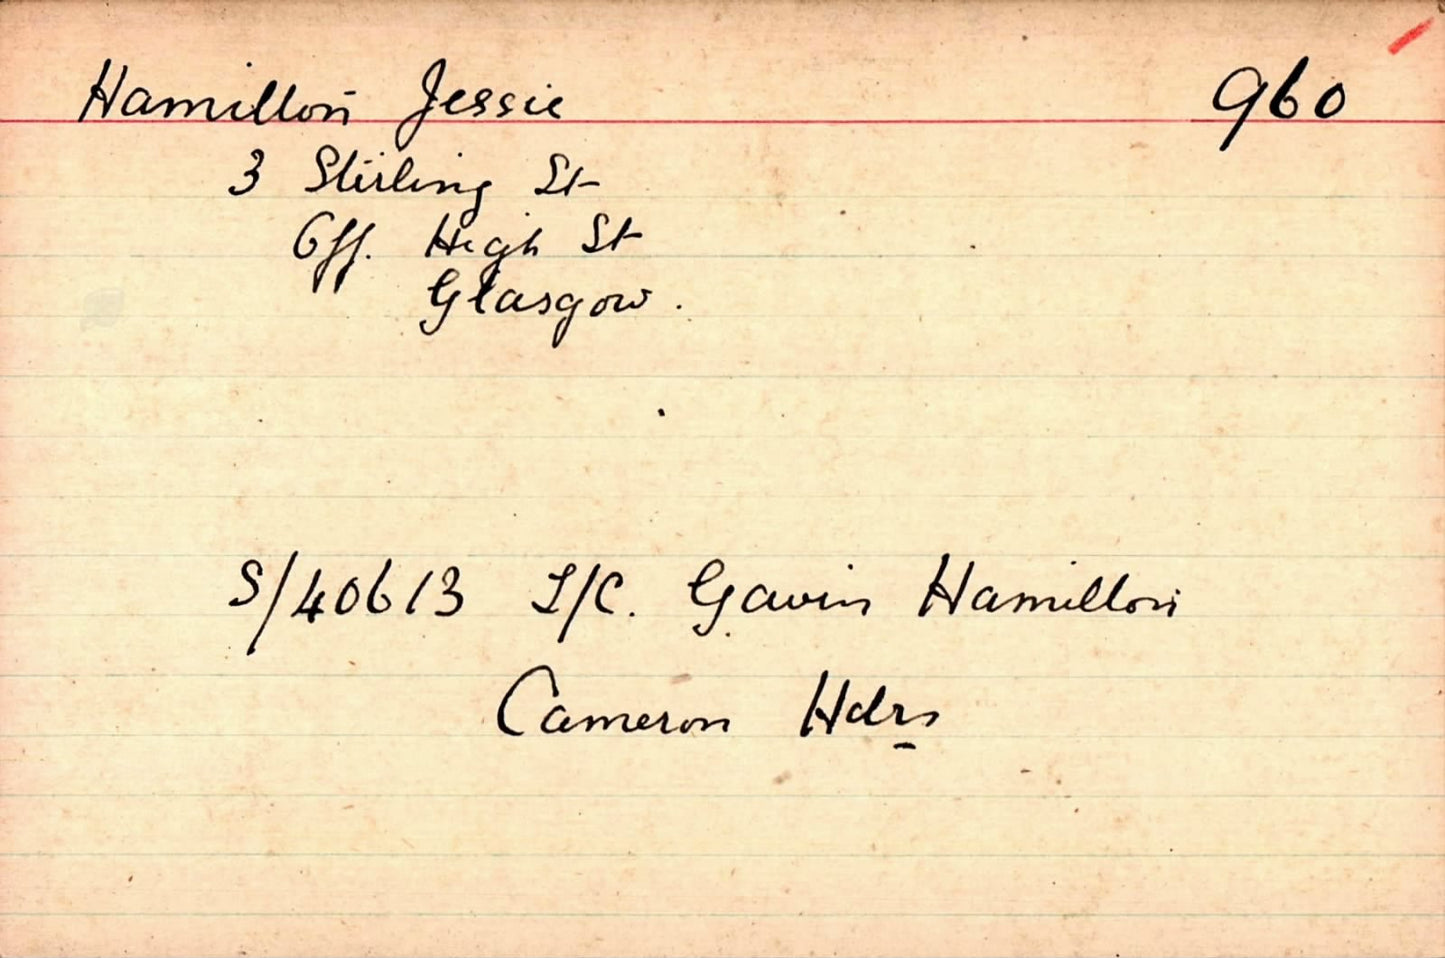 Hamilton Jessie 960
3 Stirling St
Off. High St
Glasgow.
S/40613 L/C. Gavin Hamilton
Cameron Hdrs